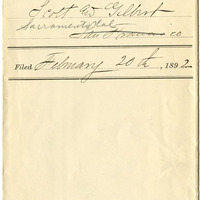 Scott & Gilbert
Sacramento Cal
San Francisco
Filed February 20th, 1892